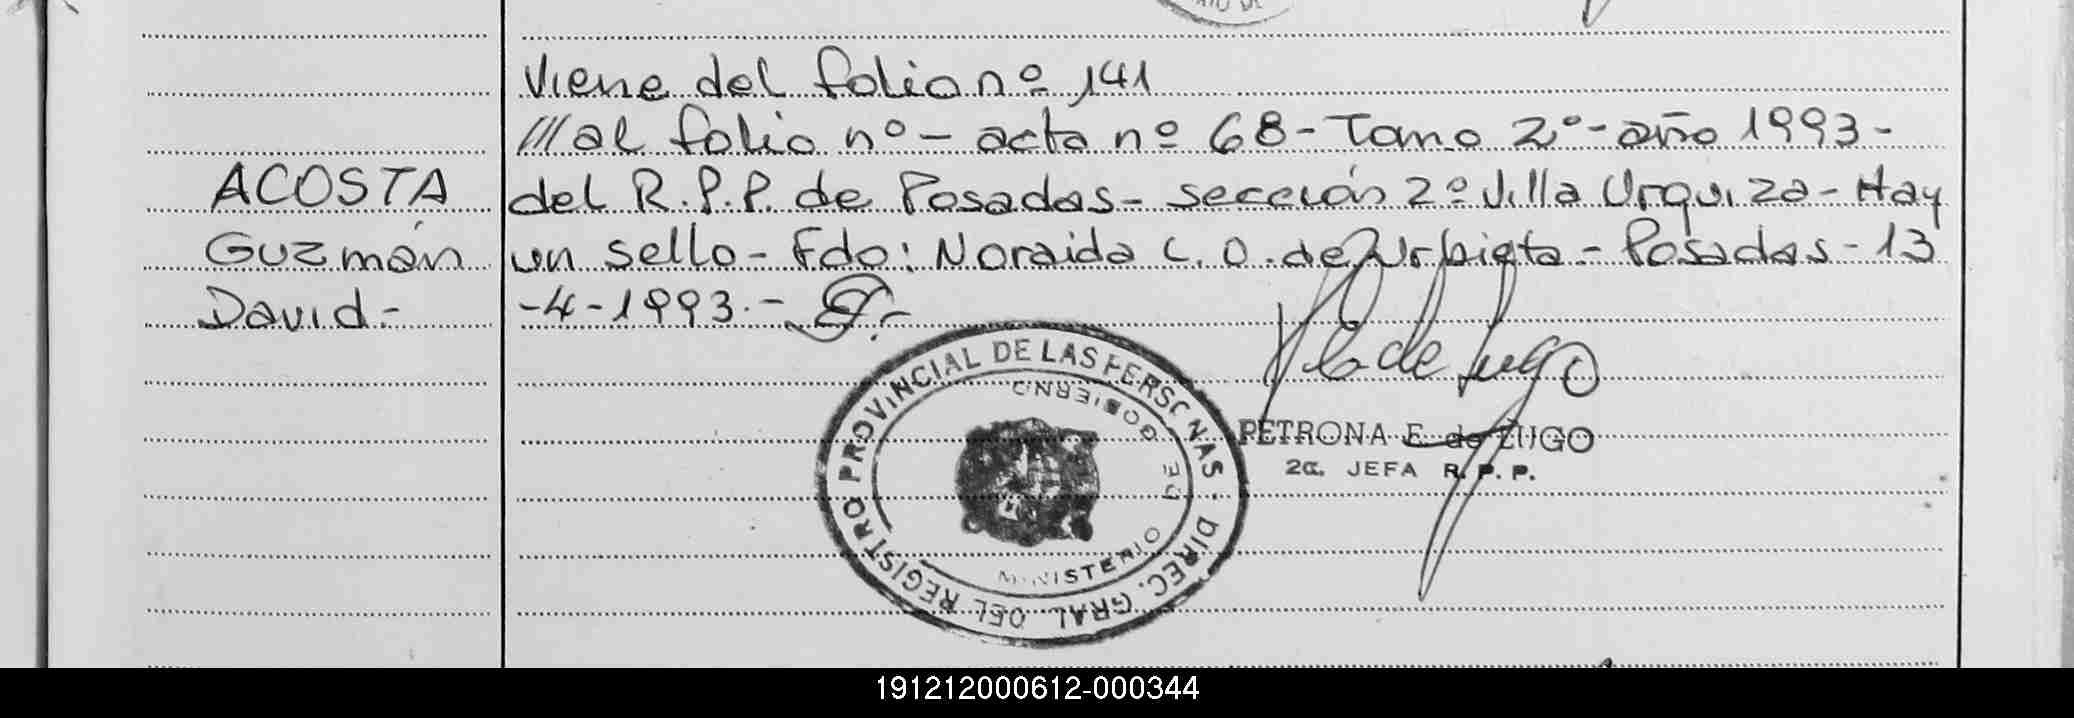 Viene del folio nº 141
///al folio nº - acta nº 68 - Tomo 2º - año 1993 -
ACOSTA
del R.P.P. de Posadas - sección 2º Villa Urquiza - Hay
Guzmán
un sello - Fdo: Noraida C. O. de Urbieta - Posadas - 13
David.-
-4-1993.-
DIREC. GRAL. DEL REGISTRO PROVINCIAL DE LAS PERSONAS
MINISTERIO DE GOBIERNO
de Lugo
PETRONA E. de LUGO
2a. JEFA R.P.P.
191212000612-000344